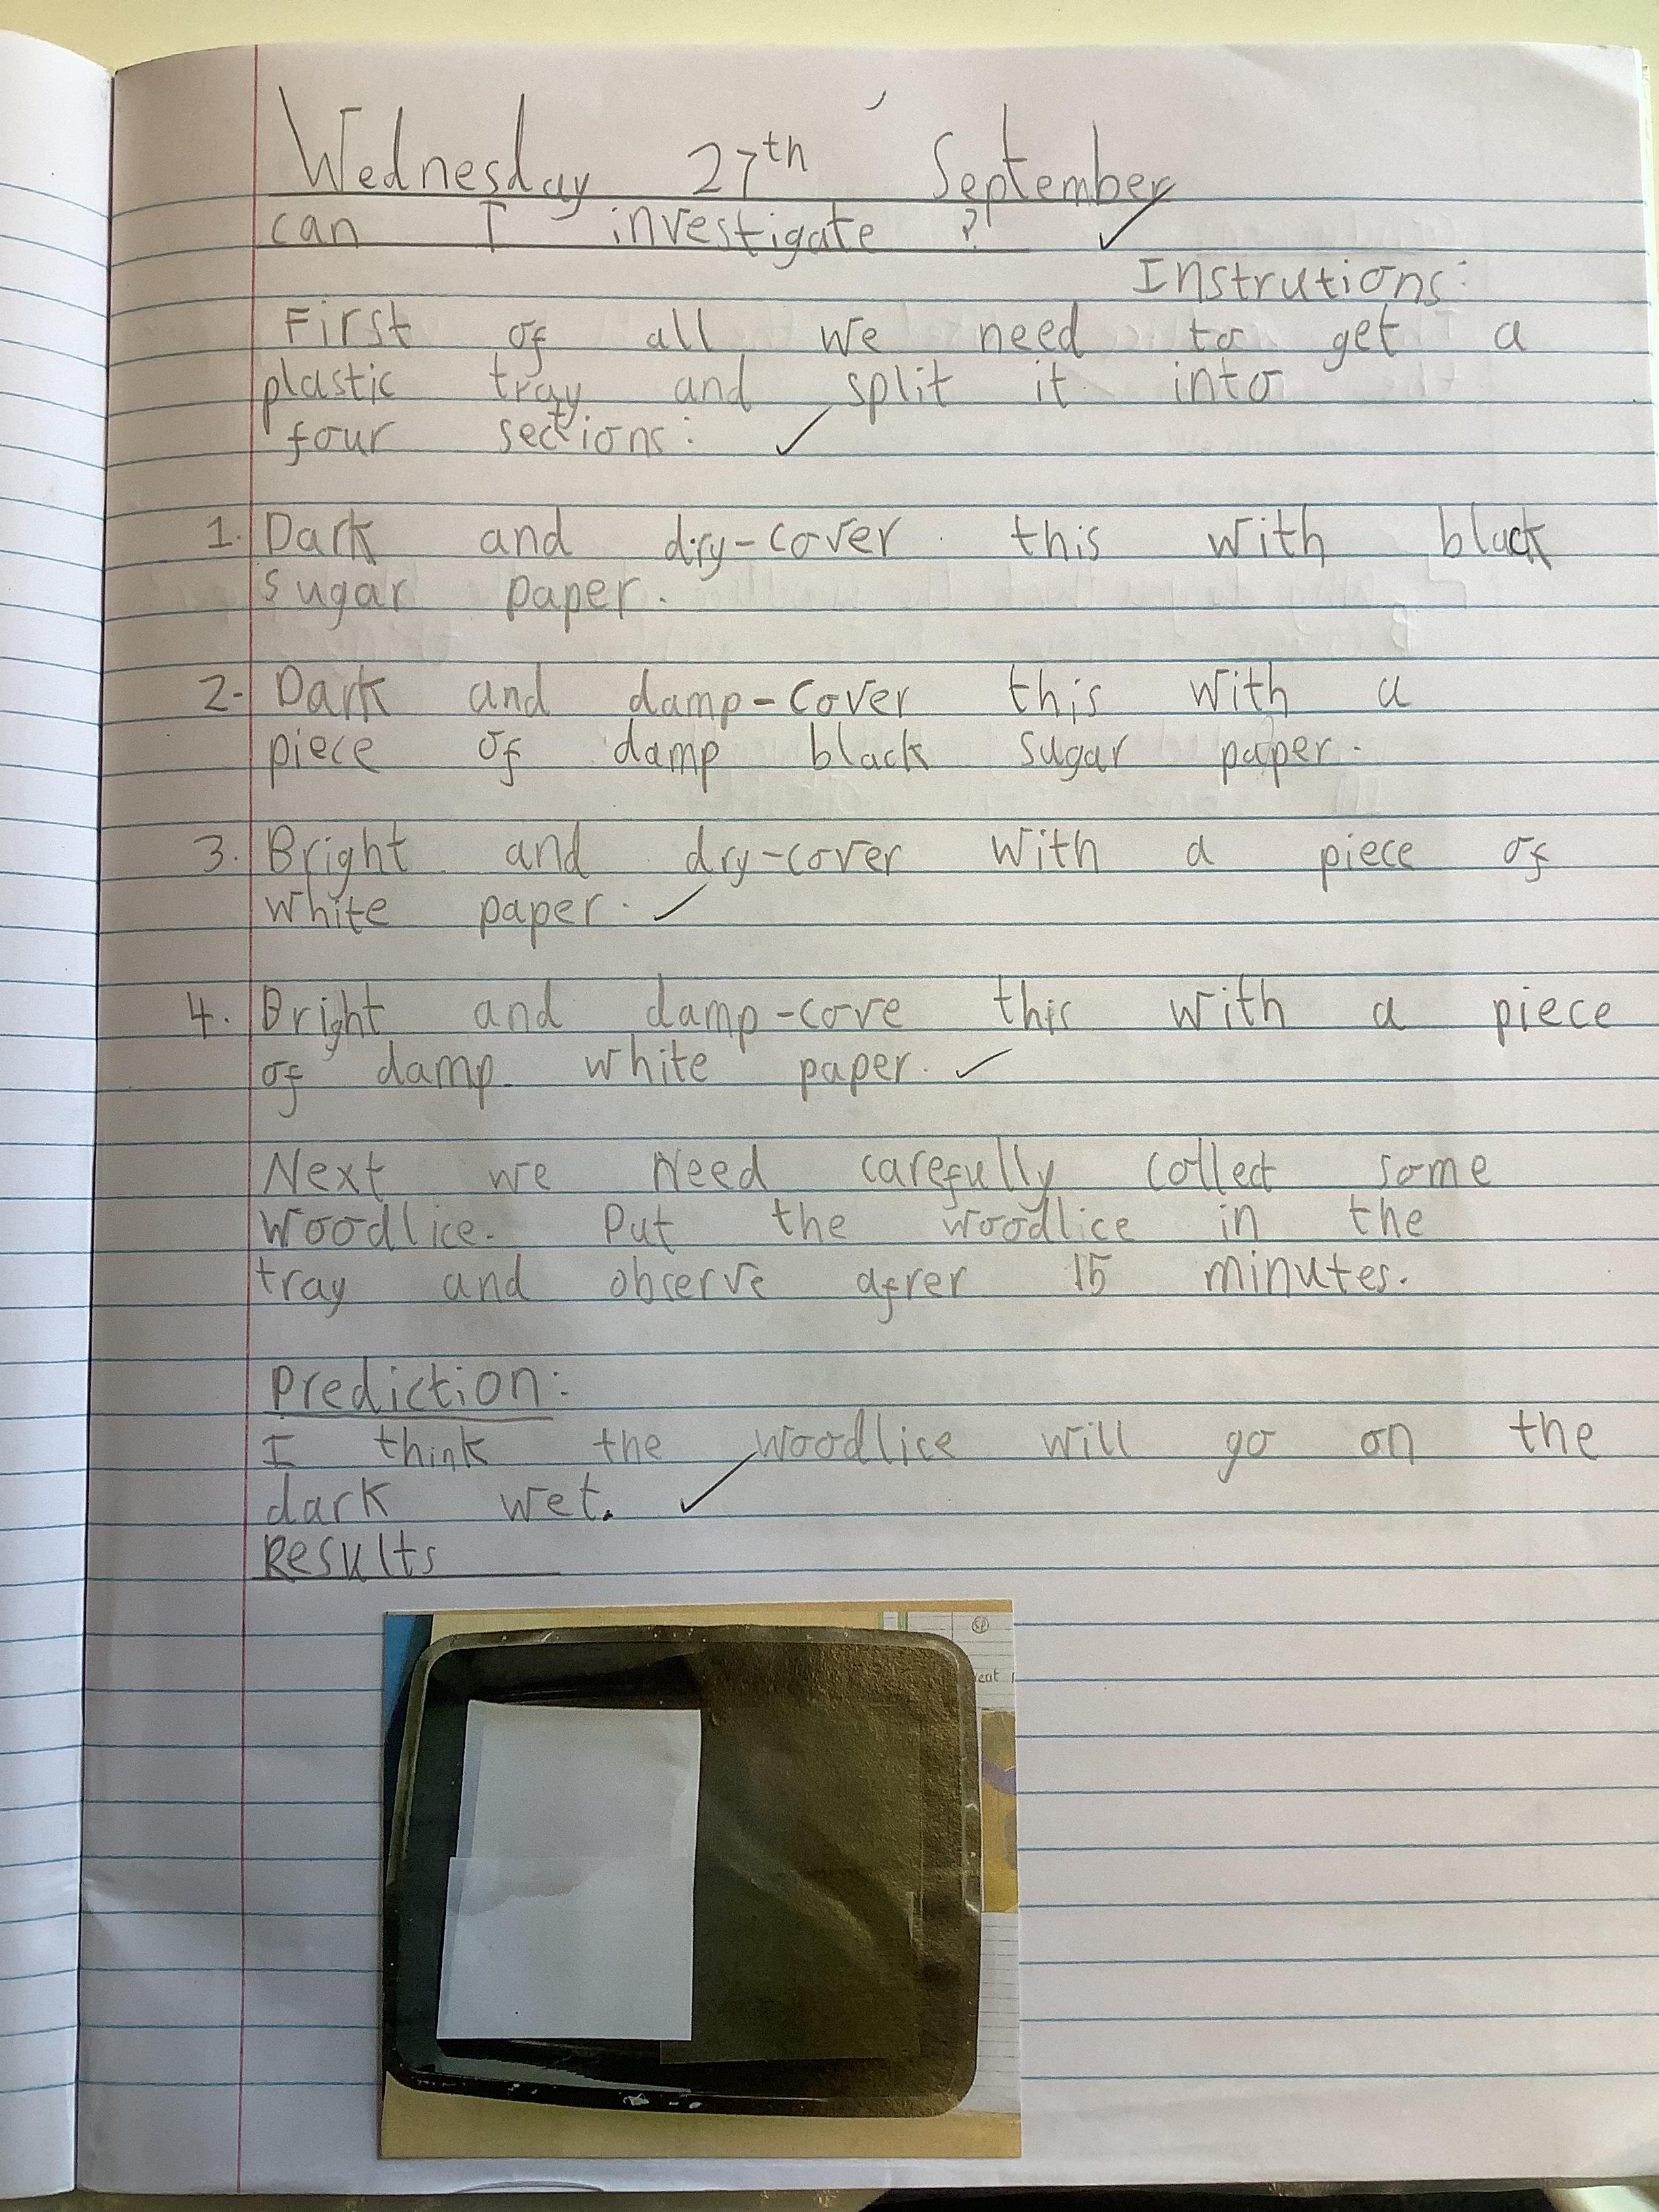 Wednesday 27th September
can I investigate ?
Instrutions:
First of all we need to get a
plastic tray and split it into
four sections:
1. Dark and dry-cover this with black
sugar paper.
2. Dark and damp-cover this with a
piece of damp black sugar paper.
3. Bright and dry-cover with a piece of
white paper.
4. Bright and damp-cove this with a piece
of damp white paper.
Next we need carefully collect some
woodlice. Put the woodlice in the
tray and observe afrer 15 minutes.
Prediction:
I think the woodlice will go on the
dark wet.
Results